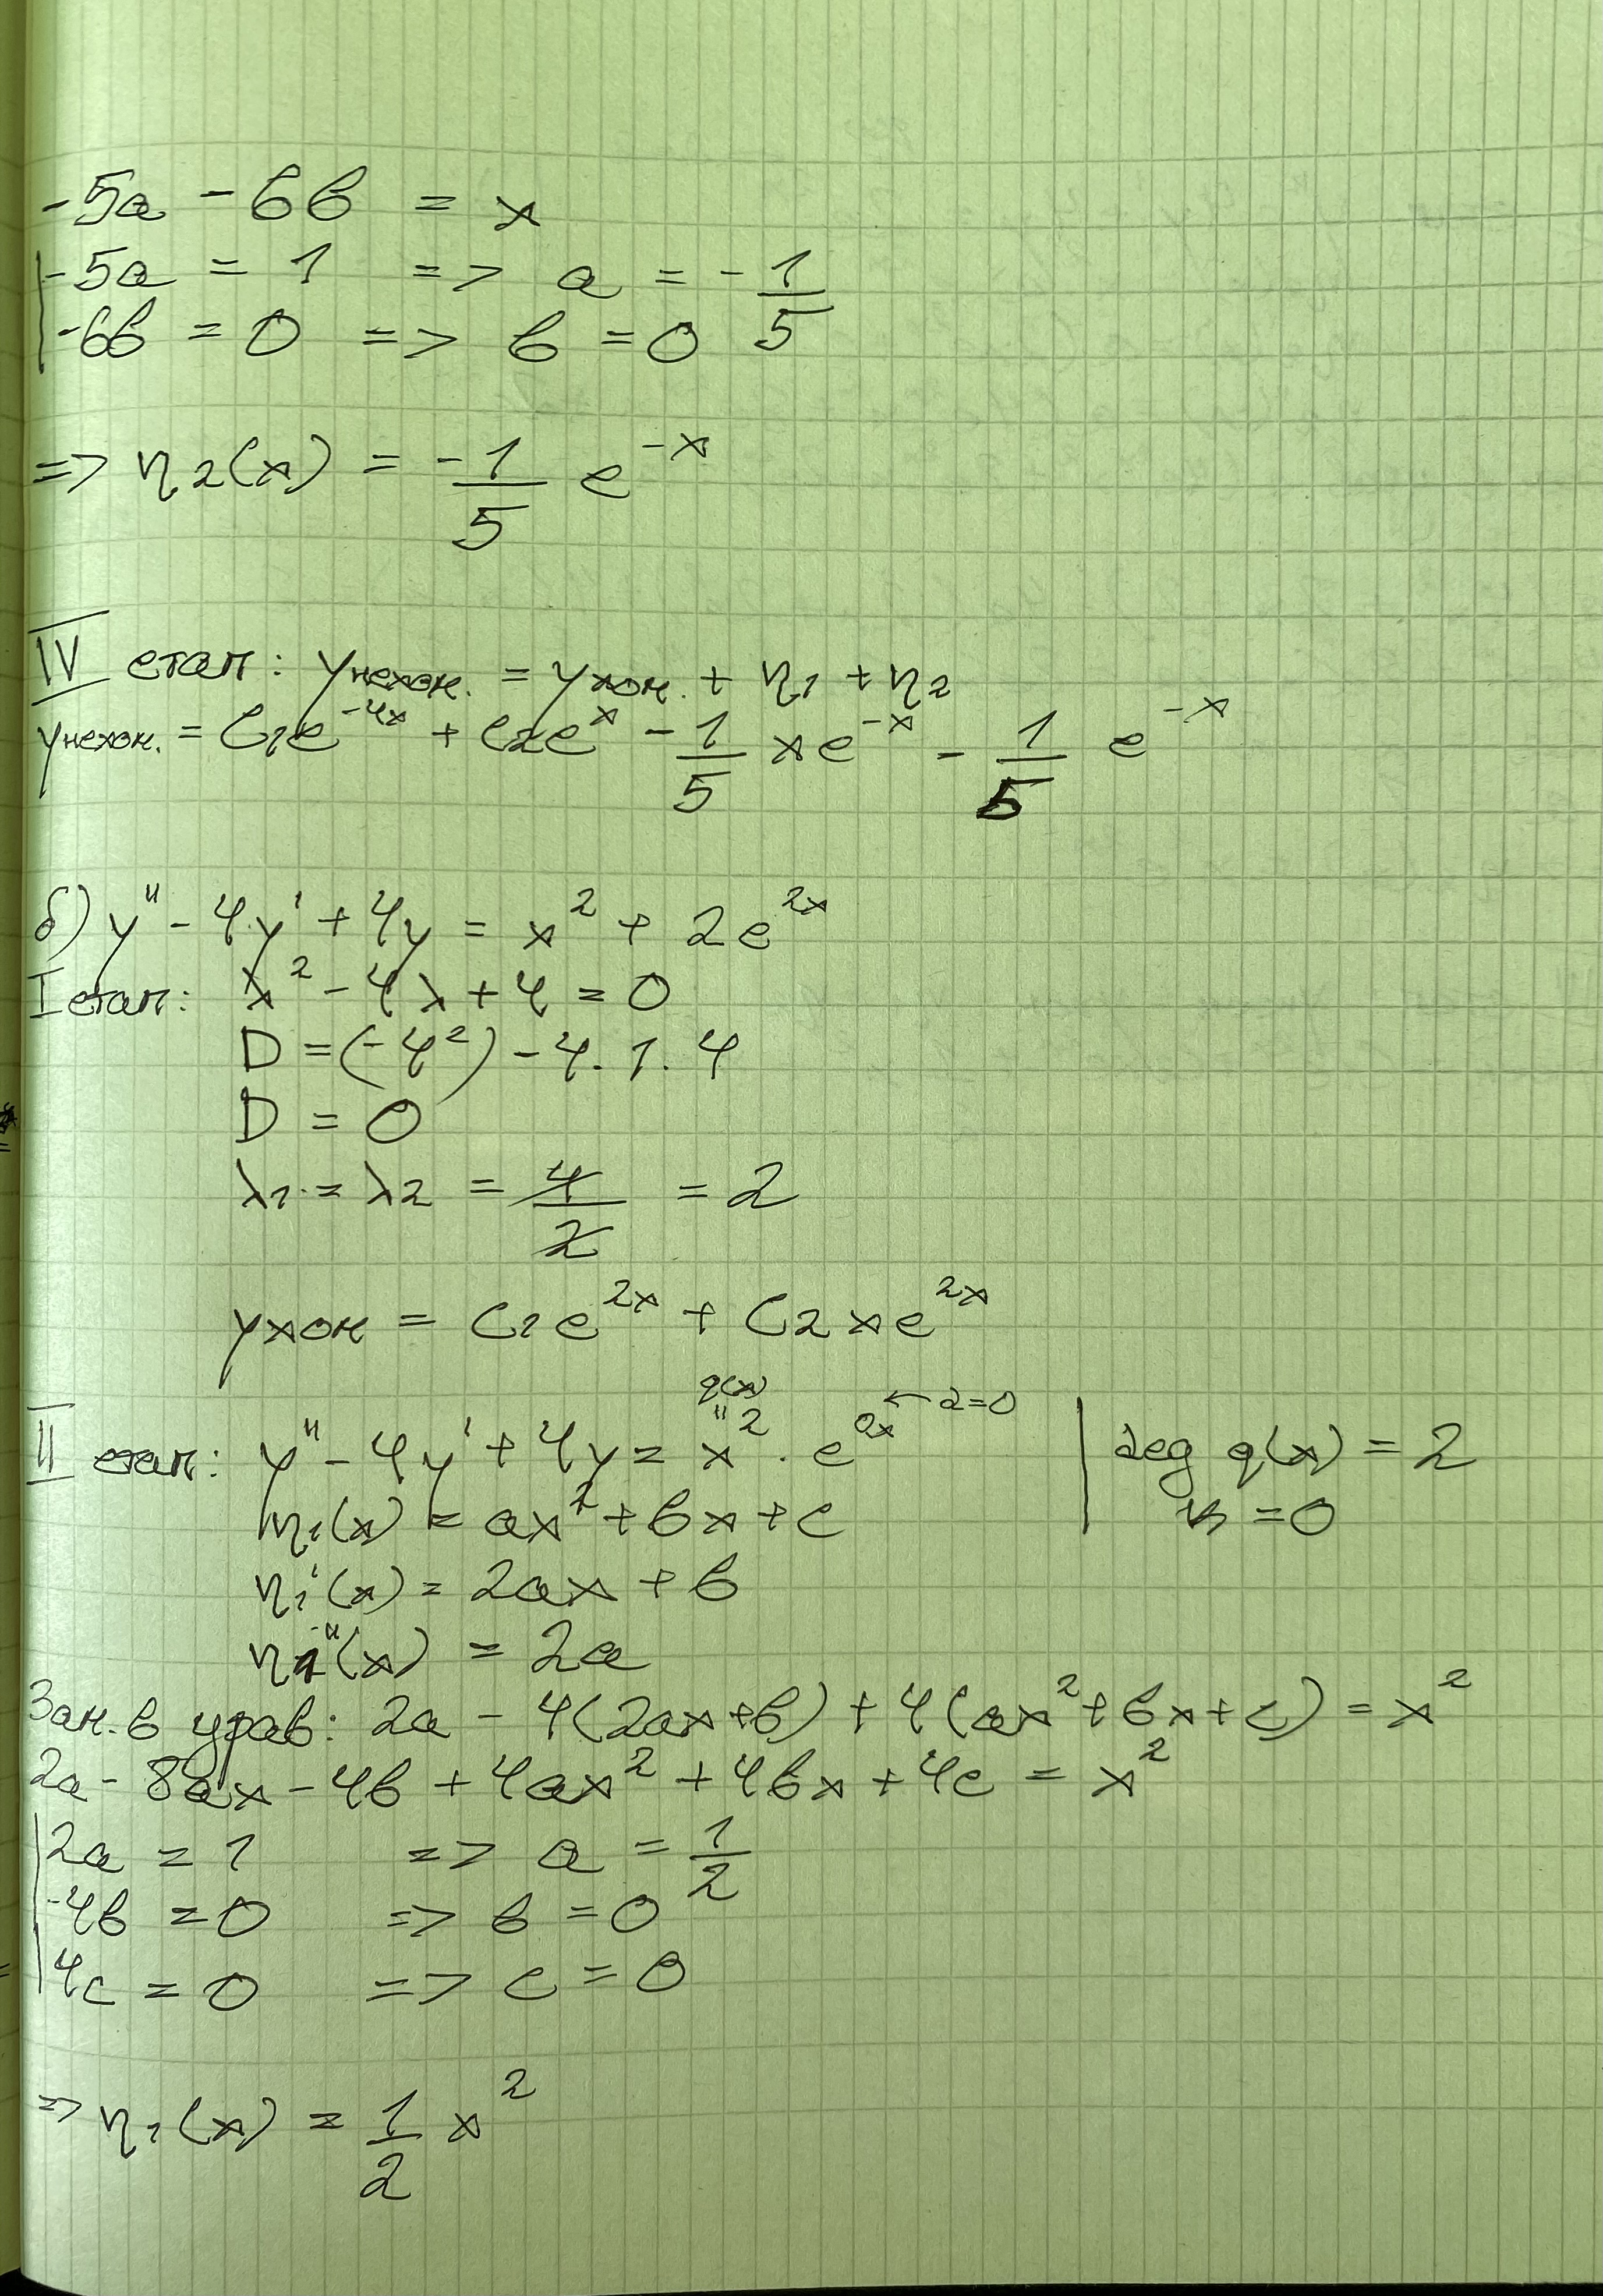 -5a - 6b = x
-5a = 1 => a = -1/5
-6b = 0 => b = 0
=> η2(x) = -1/5 e^-x
IV етап: yнехом. = yхом. + η1 + η2
yнехом. = C1e^-4x + C2e^x - 1/5 xe^-x - 1/5 e^-x
б) y'' - 4y' + 4y = x^2 + 2e^2x
I етап: λ^2 - 4λ + 4 = 0
D = (-4^2) - 4.1.4
D = 0
λ1 = λ2 = 4/2 = 2
yхом = C1e^2x + C2xe^2x
q(x)
" ← a=0
II етап: y'' - 4y' + 4y = x^2 . e^0x | deg q(x) = 2
η1(x) = ax^2 + bx + c | k = 0
η1'(x) = 2ax + b
η1''(x) = 2a
Зам. в урав: 2a - 4(2ax+b) + 4(ax^2+bx+c) = x^2
2a - 8ax - 4b + 4ax^2 + 4bx + 4c = x^2
2a = 1 => a = 1/2
-4b = 0 => b = 0
4c = 0 => c = 0
=> η1(x) = 1/2 x^2